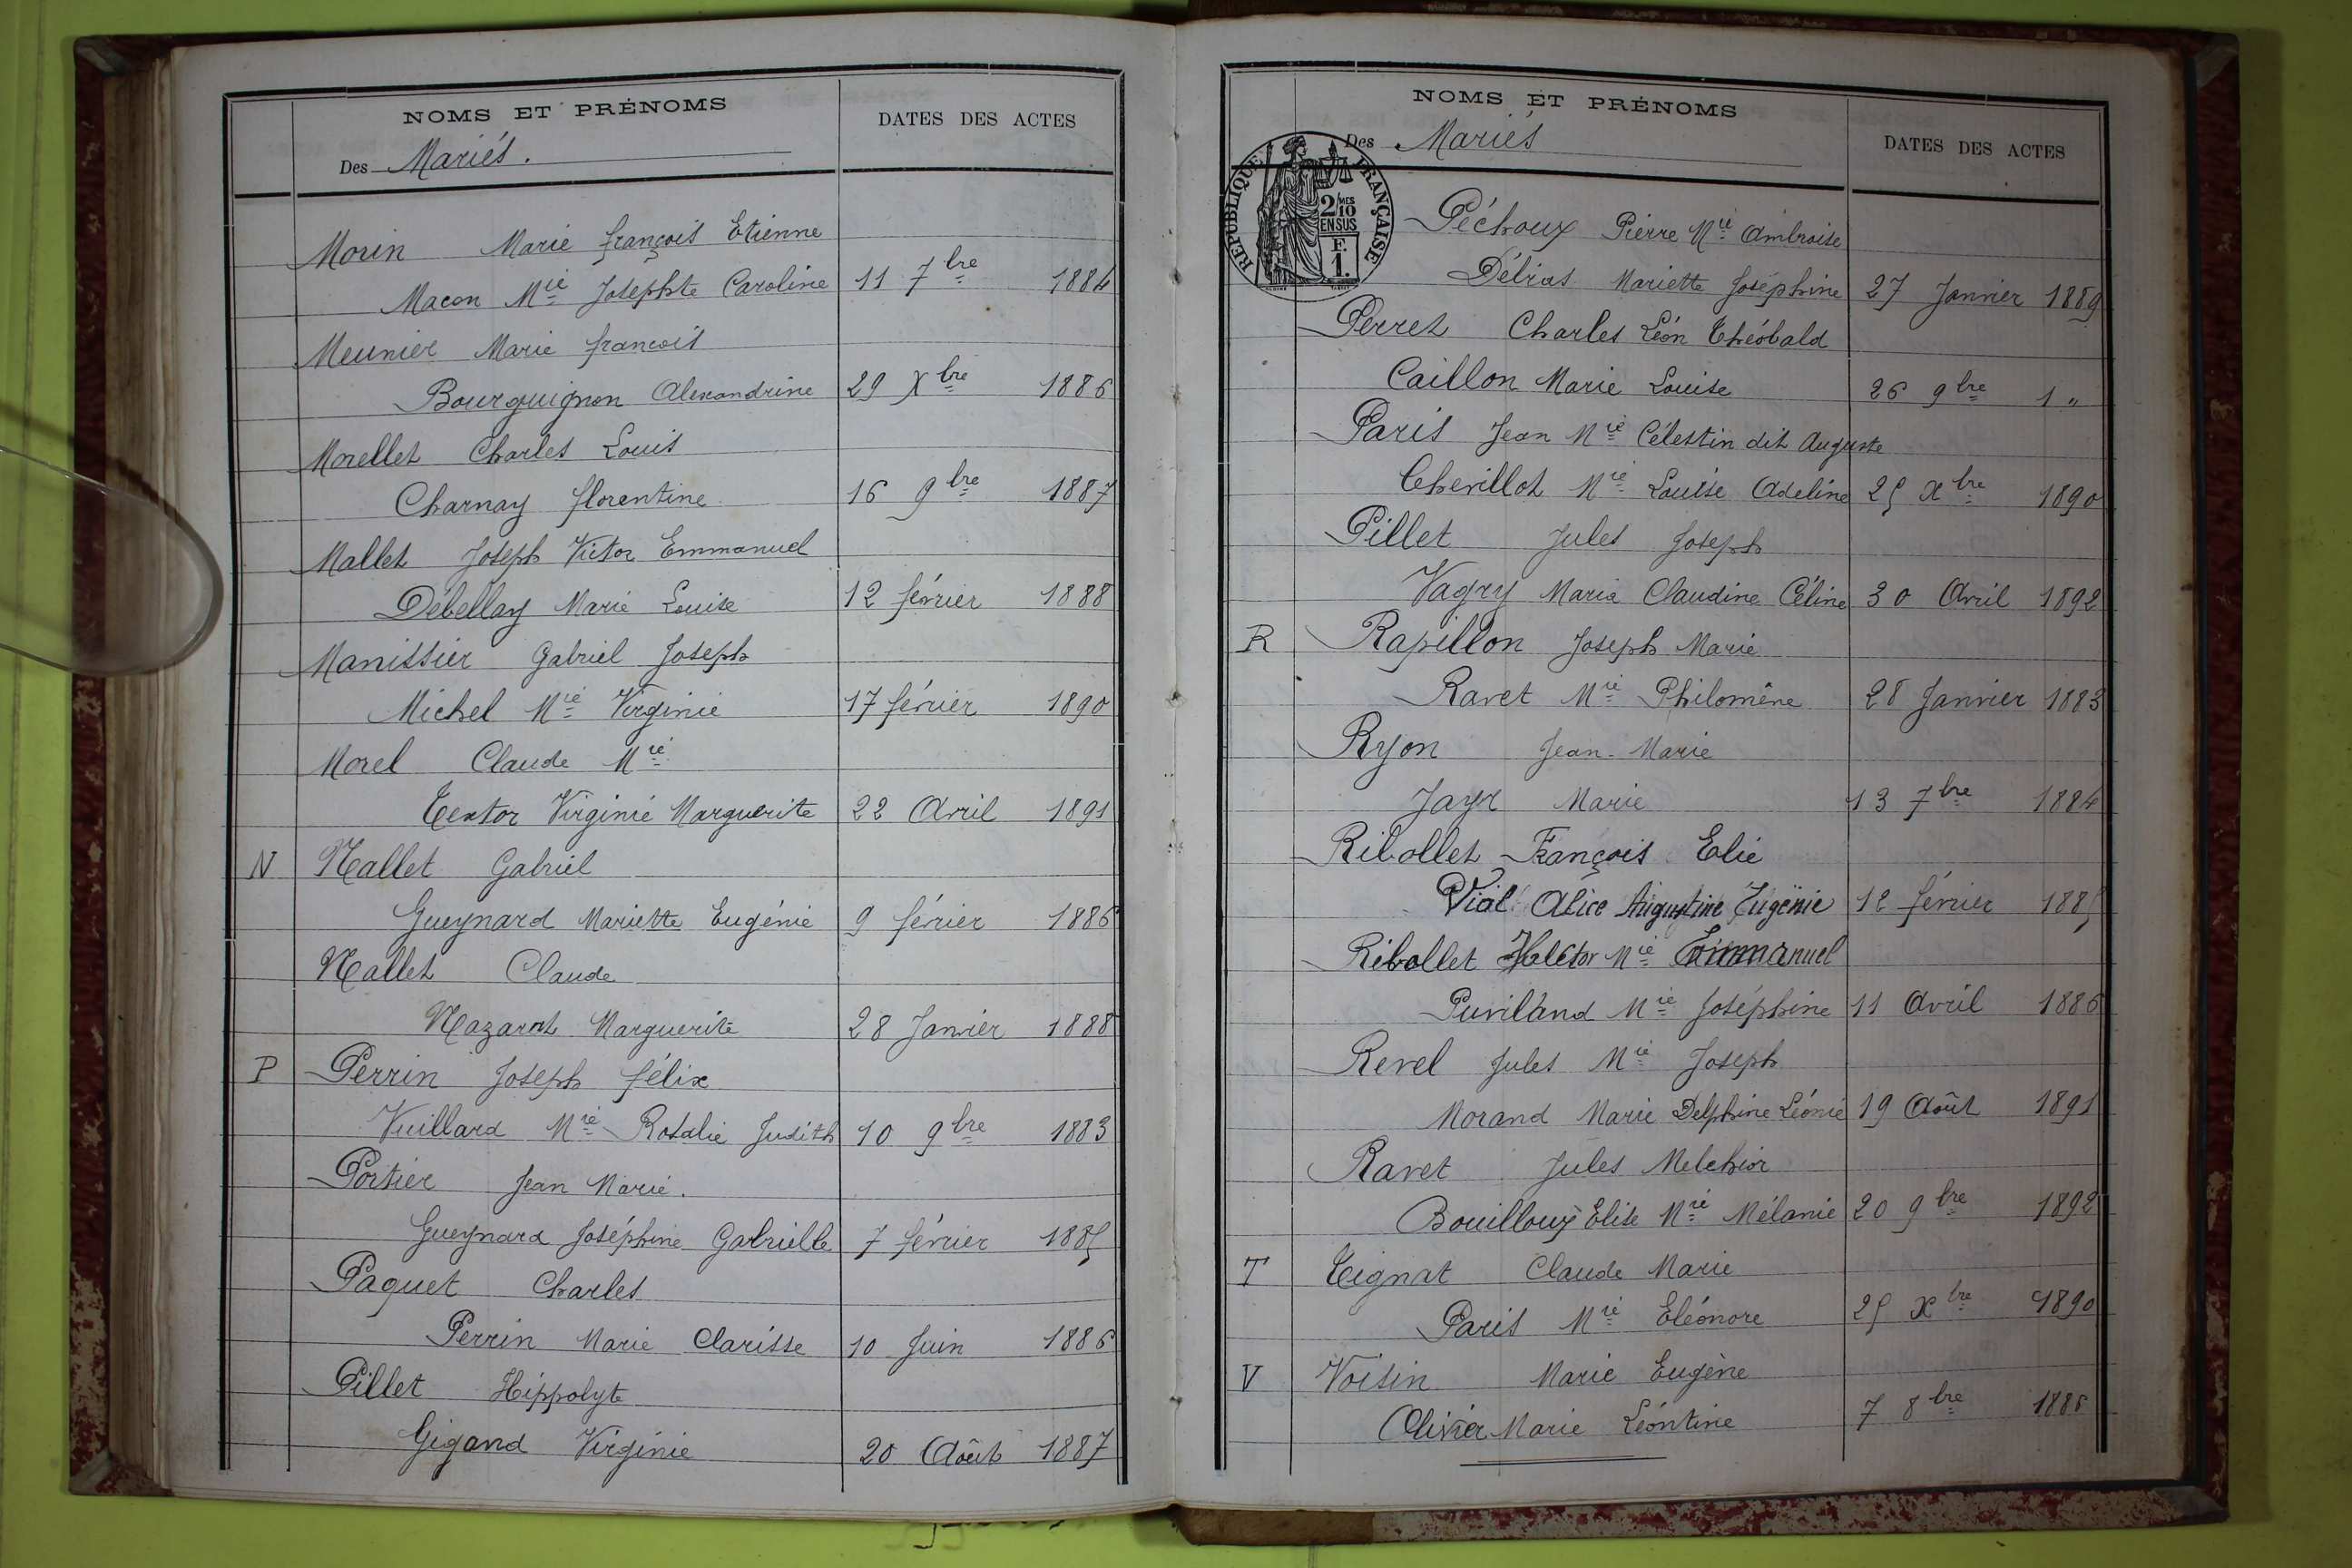 NOMS ET PRÉNOMS
DATES DES ACTES
Des Mariés.
Morin Marie françois Etienne
Macon Mie Josephte Caroline 11 7bre 1884
Meunier Marie françois
Bourguignon Alexandrine 29 Xbre 1886
Morellet Charles Louis
Charnay florentine 16 9bre 1887
Mallet Joseph Victor Emmanuel
Débellay Marie Louise 12 février 1888
Manissier Gabriel Joseph
Michel Mie Virginie 17 février 1890
Morel Claude Mie
Textor Virginie Marguerite 22 Avril 1891
N Nallet Gabriel
Gueynard Mariette Eugénie 9 février 1886
Nallet Claude
Nazarat Marguerite 28 Janvier 1888
P Perrin Joseph félix
Vuillard Mie Rosalie Judith 10 9bre 1883
Portier Jean Marie.
Gueynard Joséphine Gabrielle 7 février 1885
Paquet Charles
Perrin Marie Clarisse 10 Juin 1886
Pillet Hippolyte
Gigand Virginie 20 Août 1887
NOMS ET PRÉNOMS
DATES DES ACTES
Des Mariés
RÉPUBLIQUE FRANÇAISE
2 MES 10
EN SUS
F.
1.
Péchoux Pierre Mie Ambroise
Délias Mariette Joséphine 27 Janvier 1889
Perret Charles Léon Théobald
Caillon Marie Louise 26 9bre 1 "
Paris Jean Mie Célestin dit Auguste
Chevillot Mie Louise Adeline 25 Xbre 1890
Pillet Jules Joseph
Vagry Maria Claudine Céline 30 Avril 1892
R Rapillon Joseph Marie
Ravet Mie Philomène 28 Janvier 1883
Ryon Jean-Marie
Jayr Marie 13 7bre 1884
Ribollet François Elie
Vial Alice Augustine Eugénie 12 février 1885
Ribollet Hector Mie Emmanuel
Puvilland Mie Joséphine 11 Avril 1886
Revel Jules Mie Joseph
Morand Marie Delphine Léonie 19 Août 1891
Ravet Jules Melchior
Bouilloux Elise Mie Mélanie 20 9bre 1892
T Tignat Claude Marie
Paris Mie Eléonore 25 Xbre 1890
V Voisin Marie Eugène
Olivier Marie Léontine 7 8bre 1888